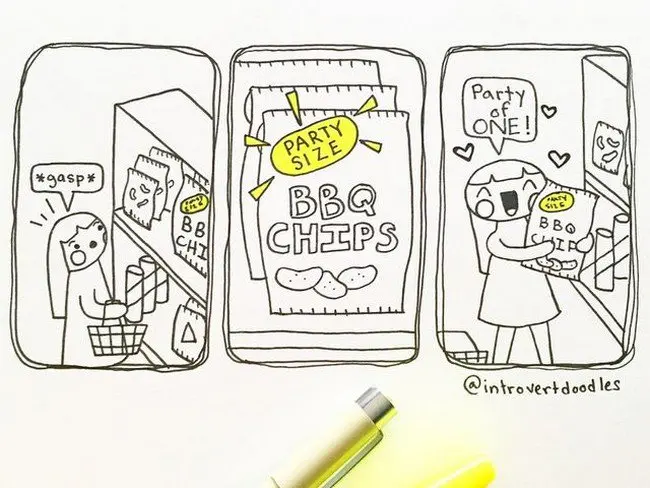 *gasp*
PARTY
SIZE
BB
CHI
PARTY
SIZE
BBQ
CHIPS
Party
of
ONE!
PARTY
SIZE
BBQ
CHIP
@introvertdoodles